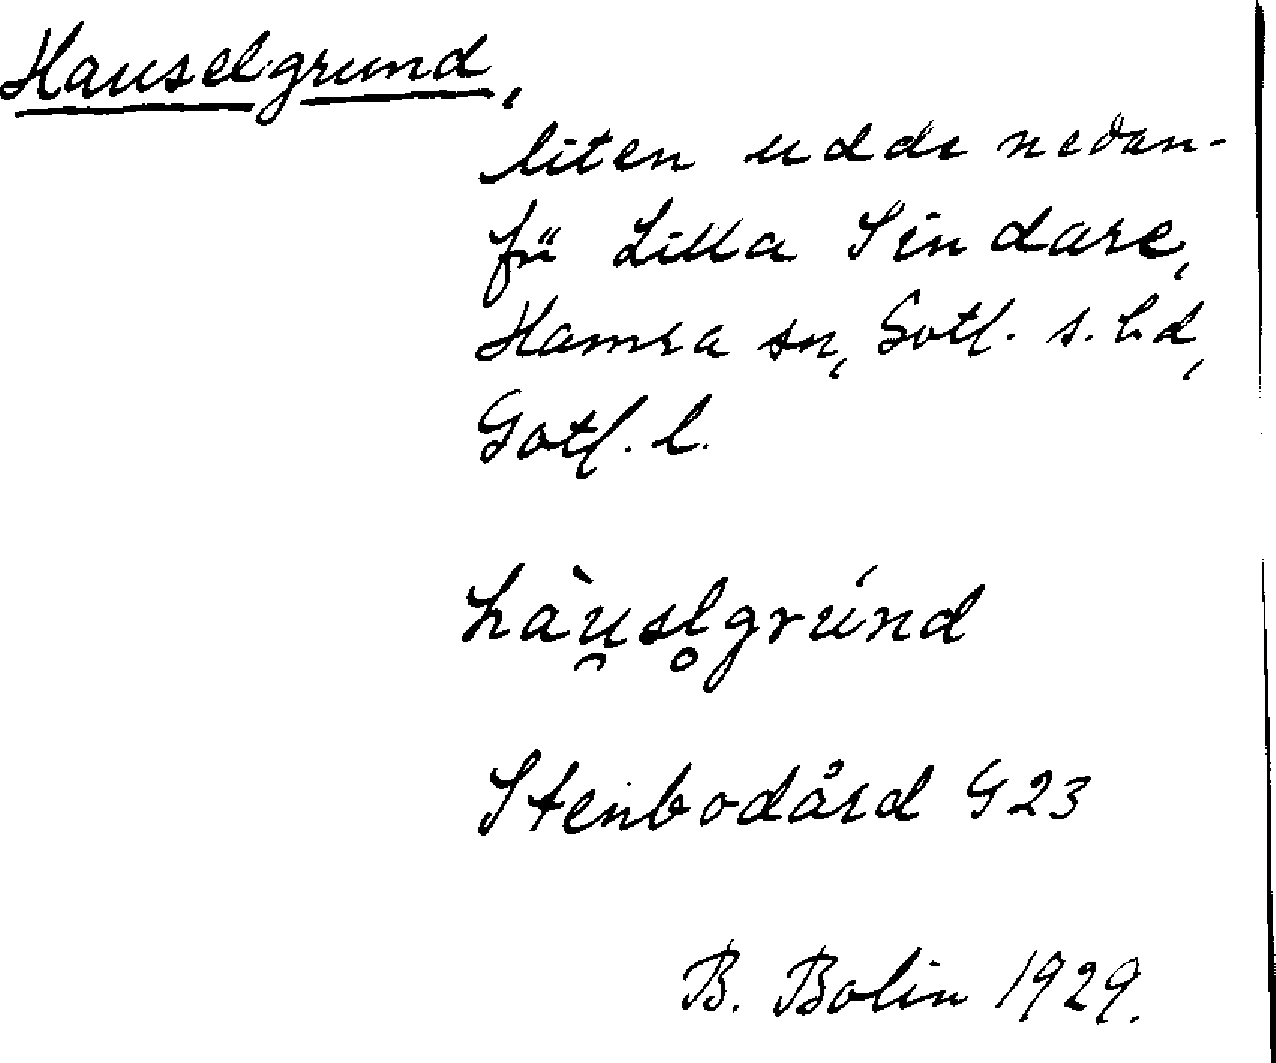 Hauselgrund,
liten udde nedan-
för Lilla Sindare,
Hamra sn, Gotl. s. hd,
Gotl. l.
hàu̯sl̥grúnd
Stenbodård G 23
B. Bolin 1929.